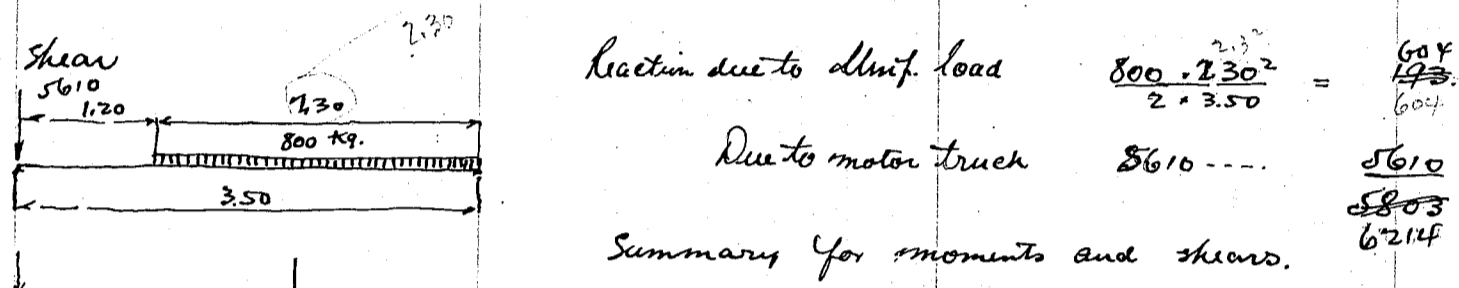 2.30
Shear
5610
1.20
2.30
800 Kg.
3.50
Reaction due to Unif. load 800 . 2.30² / 2 × 3.50 = 193. 604
2.3²
604
Due to motor truck 5610 ---- . 5610
5803
6214
Summary for moments and shears.